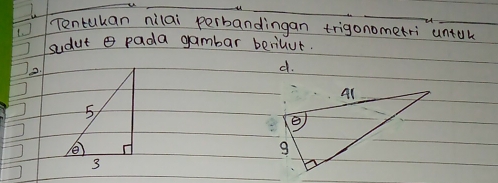 1. Tentukan nilai perbandingan trigonometri untuk
sudut θ pada gambar berikut.
a. d.
5 41
θ θ
3 9